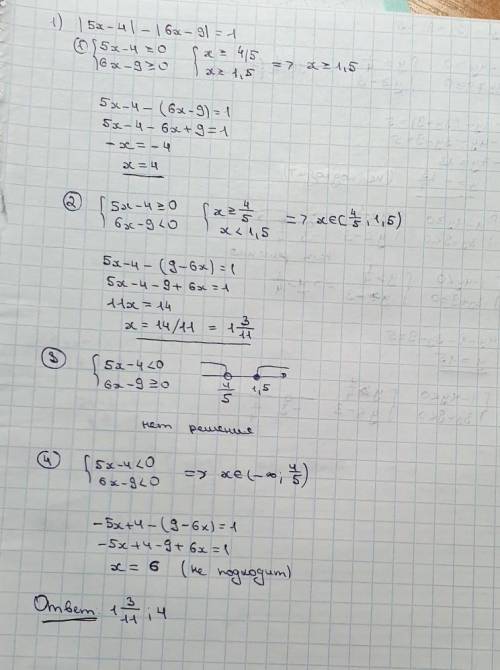 1) |5x-4| - |6x-9| = 1
① { 5x-4 ≥ 0 { x ≥ 4/5 => x ≥ 1,5
6x-9 ≥ 0 x ≥ 1,5
5x-4-(6x-9)=1
5x-4-6x+9=1
-x=-4
x=4
② { 5x-4≥0 { x ≥ 4/5 => x∈(4/5, 1,5)
6x-9<0 x < 1,5
5x-4-(9-6x)=1
5x-4-9+6x=1
11x=14
x = 14/11 = 1 3/11
③ { 5x-4<0
6x-9≥0 4/5 1,5
нет решение
④ { 5x-4<0 => x∈(-∞; 4/5)
6x-9<0
-5x+4-(9-6x)=1
-5x+4-9+6x=1
x = 6 (не подходит)
Ответ 1 3/11 ; 4